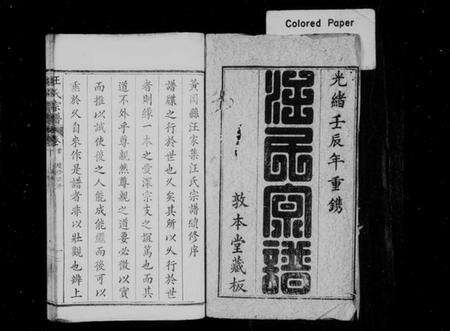 Colored Paper
光緒壬辰年重鐫
汪氏宗譜
敦本堂藏板
黄岡縣汪家集汪氏宗譜續修序
譜牒之行於世也久矣其所以久行於世
者則緣一本之愛深宗支之誼篤也而其
道不外乎尊親然尊親之道要必徵以實
而推以誠使後之人能成能繼而後可以
垂於久自來作是譜者難以壯觀也雖上
汪氏宗譜